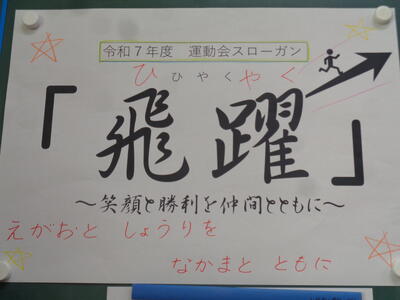 令和7年度 運動会スローガン
ひ ひやく やく
「飛躍」
～笑顔と勝利を仲間とともに～
えがおと しょうりを
なかまと ともに